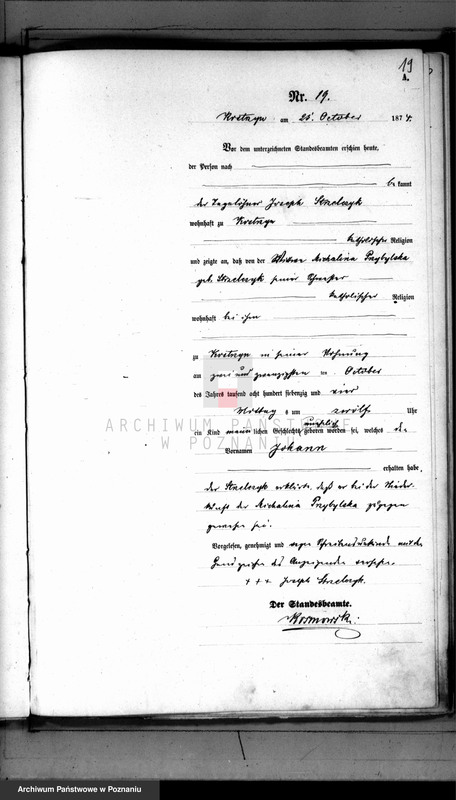 19
A.
Nr. 19.
am 26. October 1874.
Vor dem unterzeichneten Standesbeamten erschien heute,
der Person nach
bekannt
der Tagelöhner Joseph Strelczyk
wohnhaft zu
katholischer Religion
und zeigte an, daß von der Wittwe Michalina Przybylska
geb. Strelczyk seiner Schwester
katholischer Religion
wohnhaft bei ihm
zu in seiner Wohnung
am zwei und zwanzigsten October
des Jahres tausend acht hundert siebenzig und vier
Mittag um zwölf Uhr
ein Kind männlichen Geschlechts geboren worden sei, welches den
Vornamen Johann
erhalten habe
der Strelczyk erklärte, daß er bei der Nieder-
kunft der Michalina Przybylska zugegen
gewesen sei.
Vorgelesen, genehmigt und wegen mit dem
Handzeichen des Anzeigenden versehen.
+ + + Joseph Strelczyk.
Der Standesbeamte.
ARCHIWUM PAŃSTWOWE
W POZNANIU
Archiwum Państwowe w Poznaniu
Archiwum Państwowe w Poznaniu